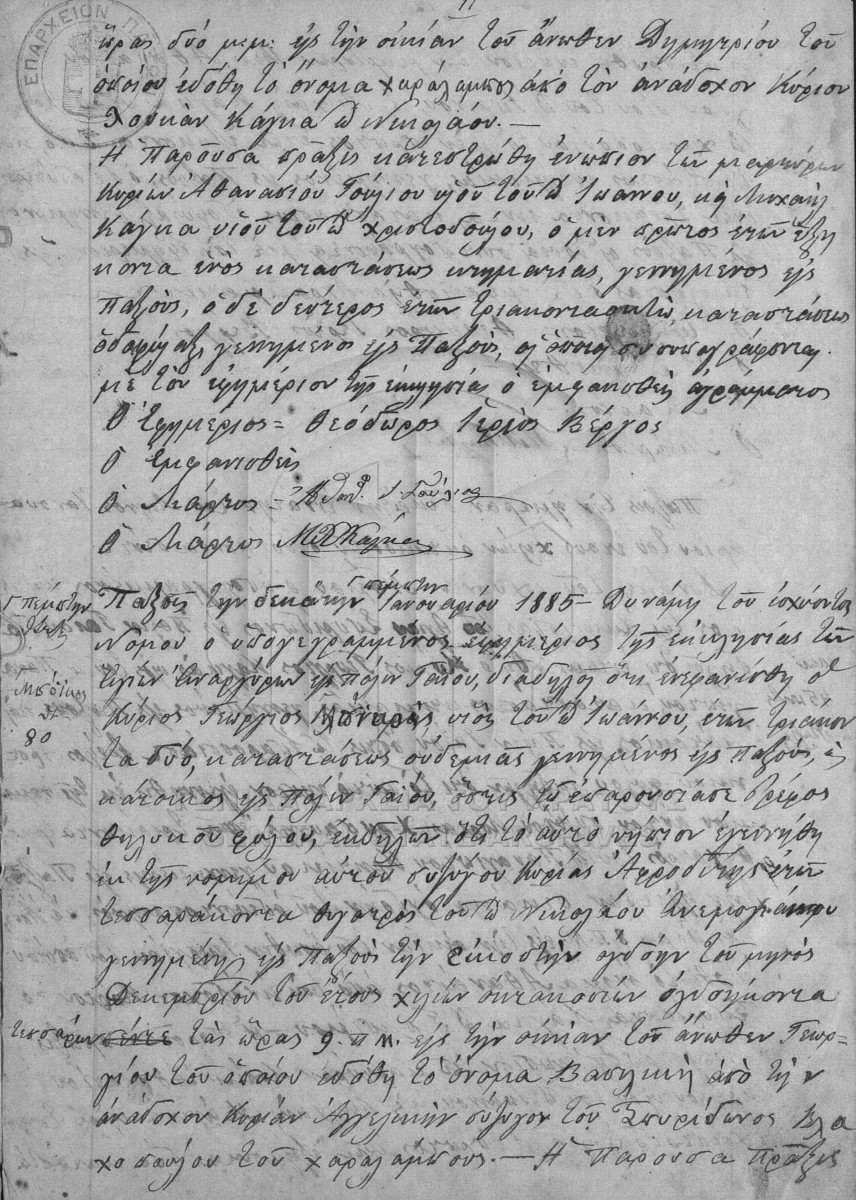 ὥρας δύο μ.μ. εἰς τὴν οἰκίαν τοῦ ἄνωθεν Δημητρίου τοῦ
ὁποίου ἐδόθη τὸ ὄνομα Χαράλαμπος ἀπὸ τὸν ἀνάδοχον Κύριον
Λουκὰν Κάγκα Νικολάου.—
Ἡ Παροῦσα πρᾶξις κατεστρώθη ἐνώπιον τῶν μαρτύρων
Κυρίων Ἀθανασίου Γούλιου υἱοῦ τοῦ Ἰωάννου, κὴ Μιχαὴλ
Κάγκα υἱοῦ τοῦ Χριστοδούλου, ὁ μὲν πρῶτος ἐτῶν ἑξή
κοντα ἑνὸς καταστάσεως κτηματίας, γεννημένος εἰς
Παξοὺς, ὁ δὲ δεύτερος ἐτῶν τριακονταοκτὼ, καταστάσεως
γεννημένος εἰς Παξοὺς, οἱ ὁποίοι συνυπογράφονται
μὲ τὸν ἐφημέριον τῆς ἐκκλησίας ὁ ἐμφανισθεὶς ἀγράμματος
Ὁ Ἐφημέριος = Θεόδωρος Ἱερεὺς Βέργος
Ὁ Ἐμφανισθεὶς
Ὁ Μάρτυς = Ἀθαν. Ι. Γούλιος
Ὁ Μάρτυς Μ Χ Κάγκας
πέμπτην
Παξοῖς τὴν δεκάτην Ἰανουαρίου 1885 — Δυνάμει τοῦ ἰσχύοντος
πέμπτην
Νόμου ὁ ὑπογεγραμμένος ἐφημέριος τῆς ἐκκλησίας τῶν
Ἁγίων Ἀναργύρων εἰς πόλιν Γαΐου, διαδηλοῖ ὅτι ἐνεφανίσθη ὁ
Κύριος Γεώργιος υἱὸς τοῦ Ἰωάννου, ἐτῶν τριάκον
80
τα δύο, καταστάσεως οὐδεμιᾶς γεννημένος εἰς Παξοὺς, κὴ
κάτοικος εἰς Πόλιν Γαΐου, ὅστις ἐπαρουσίασε βρέφος
θηλυκοῦ φύλου, ἐκδηλῶν ὅτι τὸ αὐτὸ νήπιον ἐγεννήθη
ἐκ τῆς νομίμου αὐτοῦ συζύγου Κυρίας Ἀφροδίτης ἐτῶν
τεσσαράκοντα θυγατρὸς τοῦ Νικολάου Ἀνεμογιάννου
γεννημένη εἰς Παξοὺς τὴν εἰκοστὴν ὀγδόην τοῦ μηνὸς
Δεκεμβρίου τοῦ ἔτους χιλίων ὀκτακοσίων ὀγδοήκοντα
τεσσάρων πέντε τὰς ὥρας 9. π μ. εἰς τὴν οἰκίαν τοῦ ἄνωθεν Γεωρ-
γίου τοῦ ὁποίου ἐδόθη τὸ ὄνομα Βασιλικὴ ἀπὸ τὴν
ἀνάδοχον Κυρίαν Ἀγγελικὴν σύζυγον τοῦ Σπυρίδωνος Βλα
χοπούλου τοῦ Χαραλάμπους.— Ἡ Παροῦσα Πρᾶξις